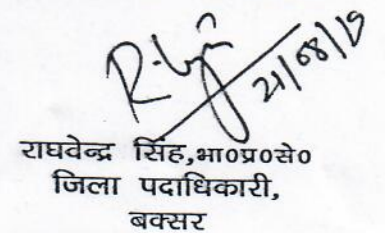 21/08/19
राघवेन्द्र सिंह,भा०प्र०से०
जिला पदाधिकारी,
बक्सर